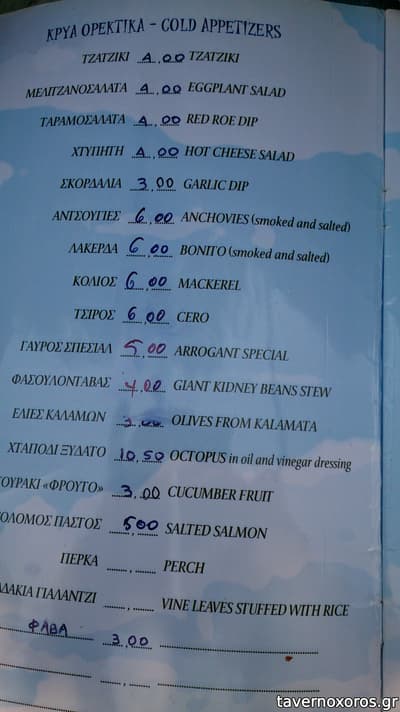 ΚΡΥΑ ΟΡΕΚΤΙΚΑ – COLD APPETIZERS
ΤΖΑΤΖΙΚΙ 4,00 TZATZIKI
ΜΕΛΙΤΖΑΝΟΣΑΛΑΤΑ 4,00 EGGPLANT SALAD
ΤΑΡΑΜΟΣΑΛΑΤΑ 4,00 RED ROE DIP
ΧΤΥΠΗΤΗ 4,00 HOT CHEESE SALAD
ΣΚΟΡΔΑΛΙΑ 3,00 GARLIC DIP
ΑΝΤΣΟΥΓΙΕΣ 6,00 ANCHOVIES (smoked and salted)
ΛΑΚΕΡΔΑ 6,00 BONITO (smoked and salted)
ΚΟΛΙΟΣ 6,00 MACKEREL
ΤΣΙΡΟΣ 6,00 CERO
ΓΑΥΡΟΣ ΣΠΕΣΙΑΛ 5,00 ARROGANT SPECIAL
ΦΑΣΟΥΛΟΝΤΑΒΑΣ 4,00 GIANT KIDNEY BEANS STEW
ΕΛΙΕΣ ΚΑΛΑΜΩΝ 3,00 OLIVES FROM KALAMATA
ΧΤΑΠΟΔΙ ΞΥΔΑΤΟ 10,50 OCTOPUS in oil and vinegar dressing
ΟΥΡΑΚΙ «ΦΡΟΥΤΟ» 3,00 CUCUMBER FRUIT
ΟΛΟΜΟΣ ΠΑΣΤΟΣ 5,00 SALTED SALMON
ΠΕΡΚΑ ....,.... PERCH
ΑΔΑΚΙΑ ΓΙΑΛΑΝΤΖΙ ....,.... VINE LEAVES STUFFED WITH RICE
ΦΑΒΑ 3,00
tavernoxoros.gr